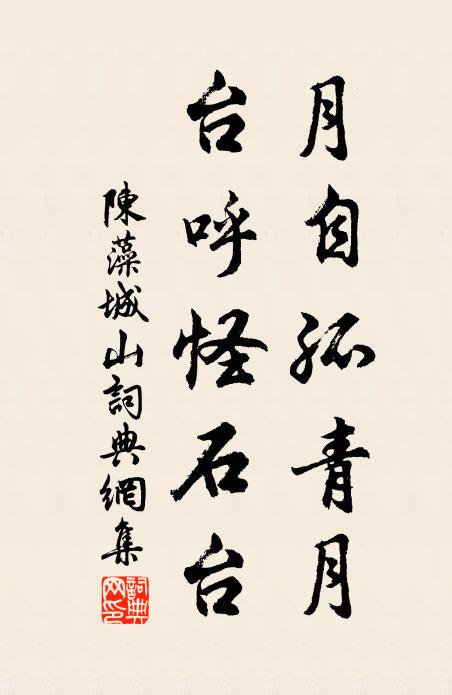 月自孤青月
台呼怪石台
陳藻城山詞典網集
詞典网印